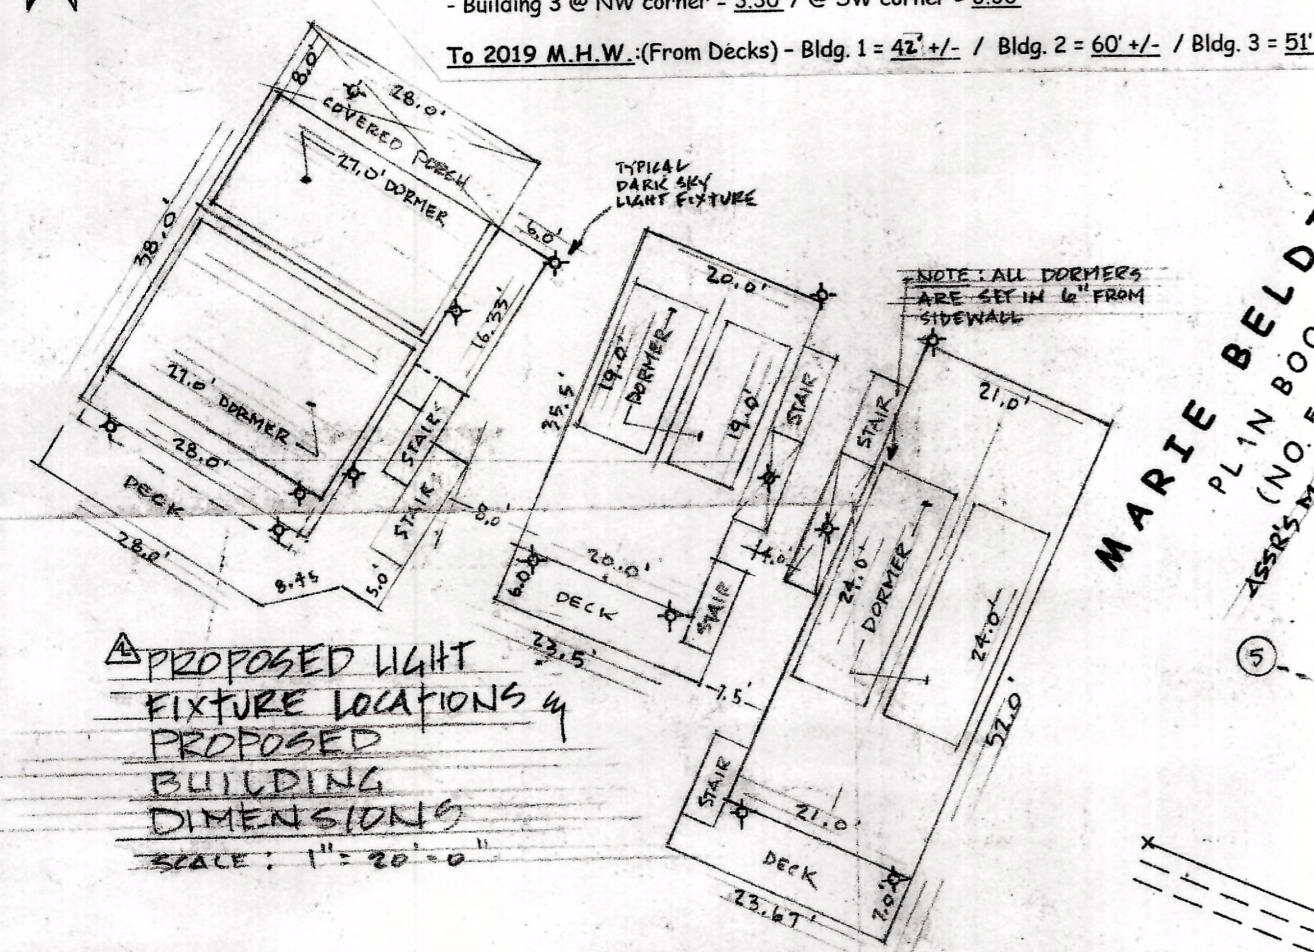 - Building 3 @ NW corner =
To 2019 M.H.W.:(From Decks) - Bldg. 1 = 42' +/- / Bldg. 2 = 60' +/- / Bldg. 3 = 51'
8.0'
28.0'
COVERED PORCH
27.0' DORMER
38.0'
6.0'
16.33'
27.0' DORMER
28.0'
DECK
28.0'
8.45
5.0'
STAIRS
STAIRS
TYPICAL
DARK SKY
LIGHT FIXTURE
20.0'
19.0'
DORMER
19.0'
35.5'
STAIR
8.0'
20.0'
6.0'
DECK
STAIR
23.5'
4.0'
7.5'
NOTE: ALL DORMERS
ARE SET IN 6" FROM
SIDEWALL
STAIR
21.0'
24.0'
DORMER
24.0'
52.0'
STAIR
21.0'
DECK
7.0'
23.67'
PROPOSED LIGHT
FIXTURE LOCATIONS
PROPOSED
BUILDING
DIMENSIONS
SCALE: 1" = 20'-0"
MARIE BELD
PLAN BOO
(NO
ASSR'S M
5